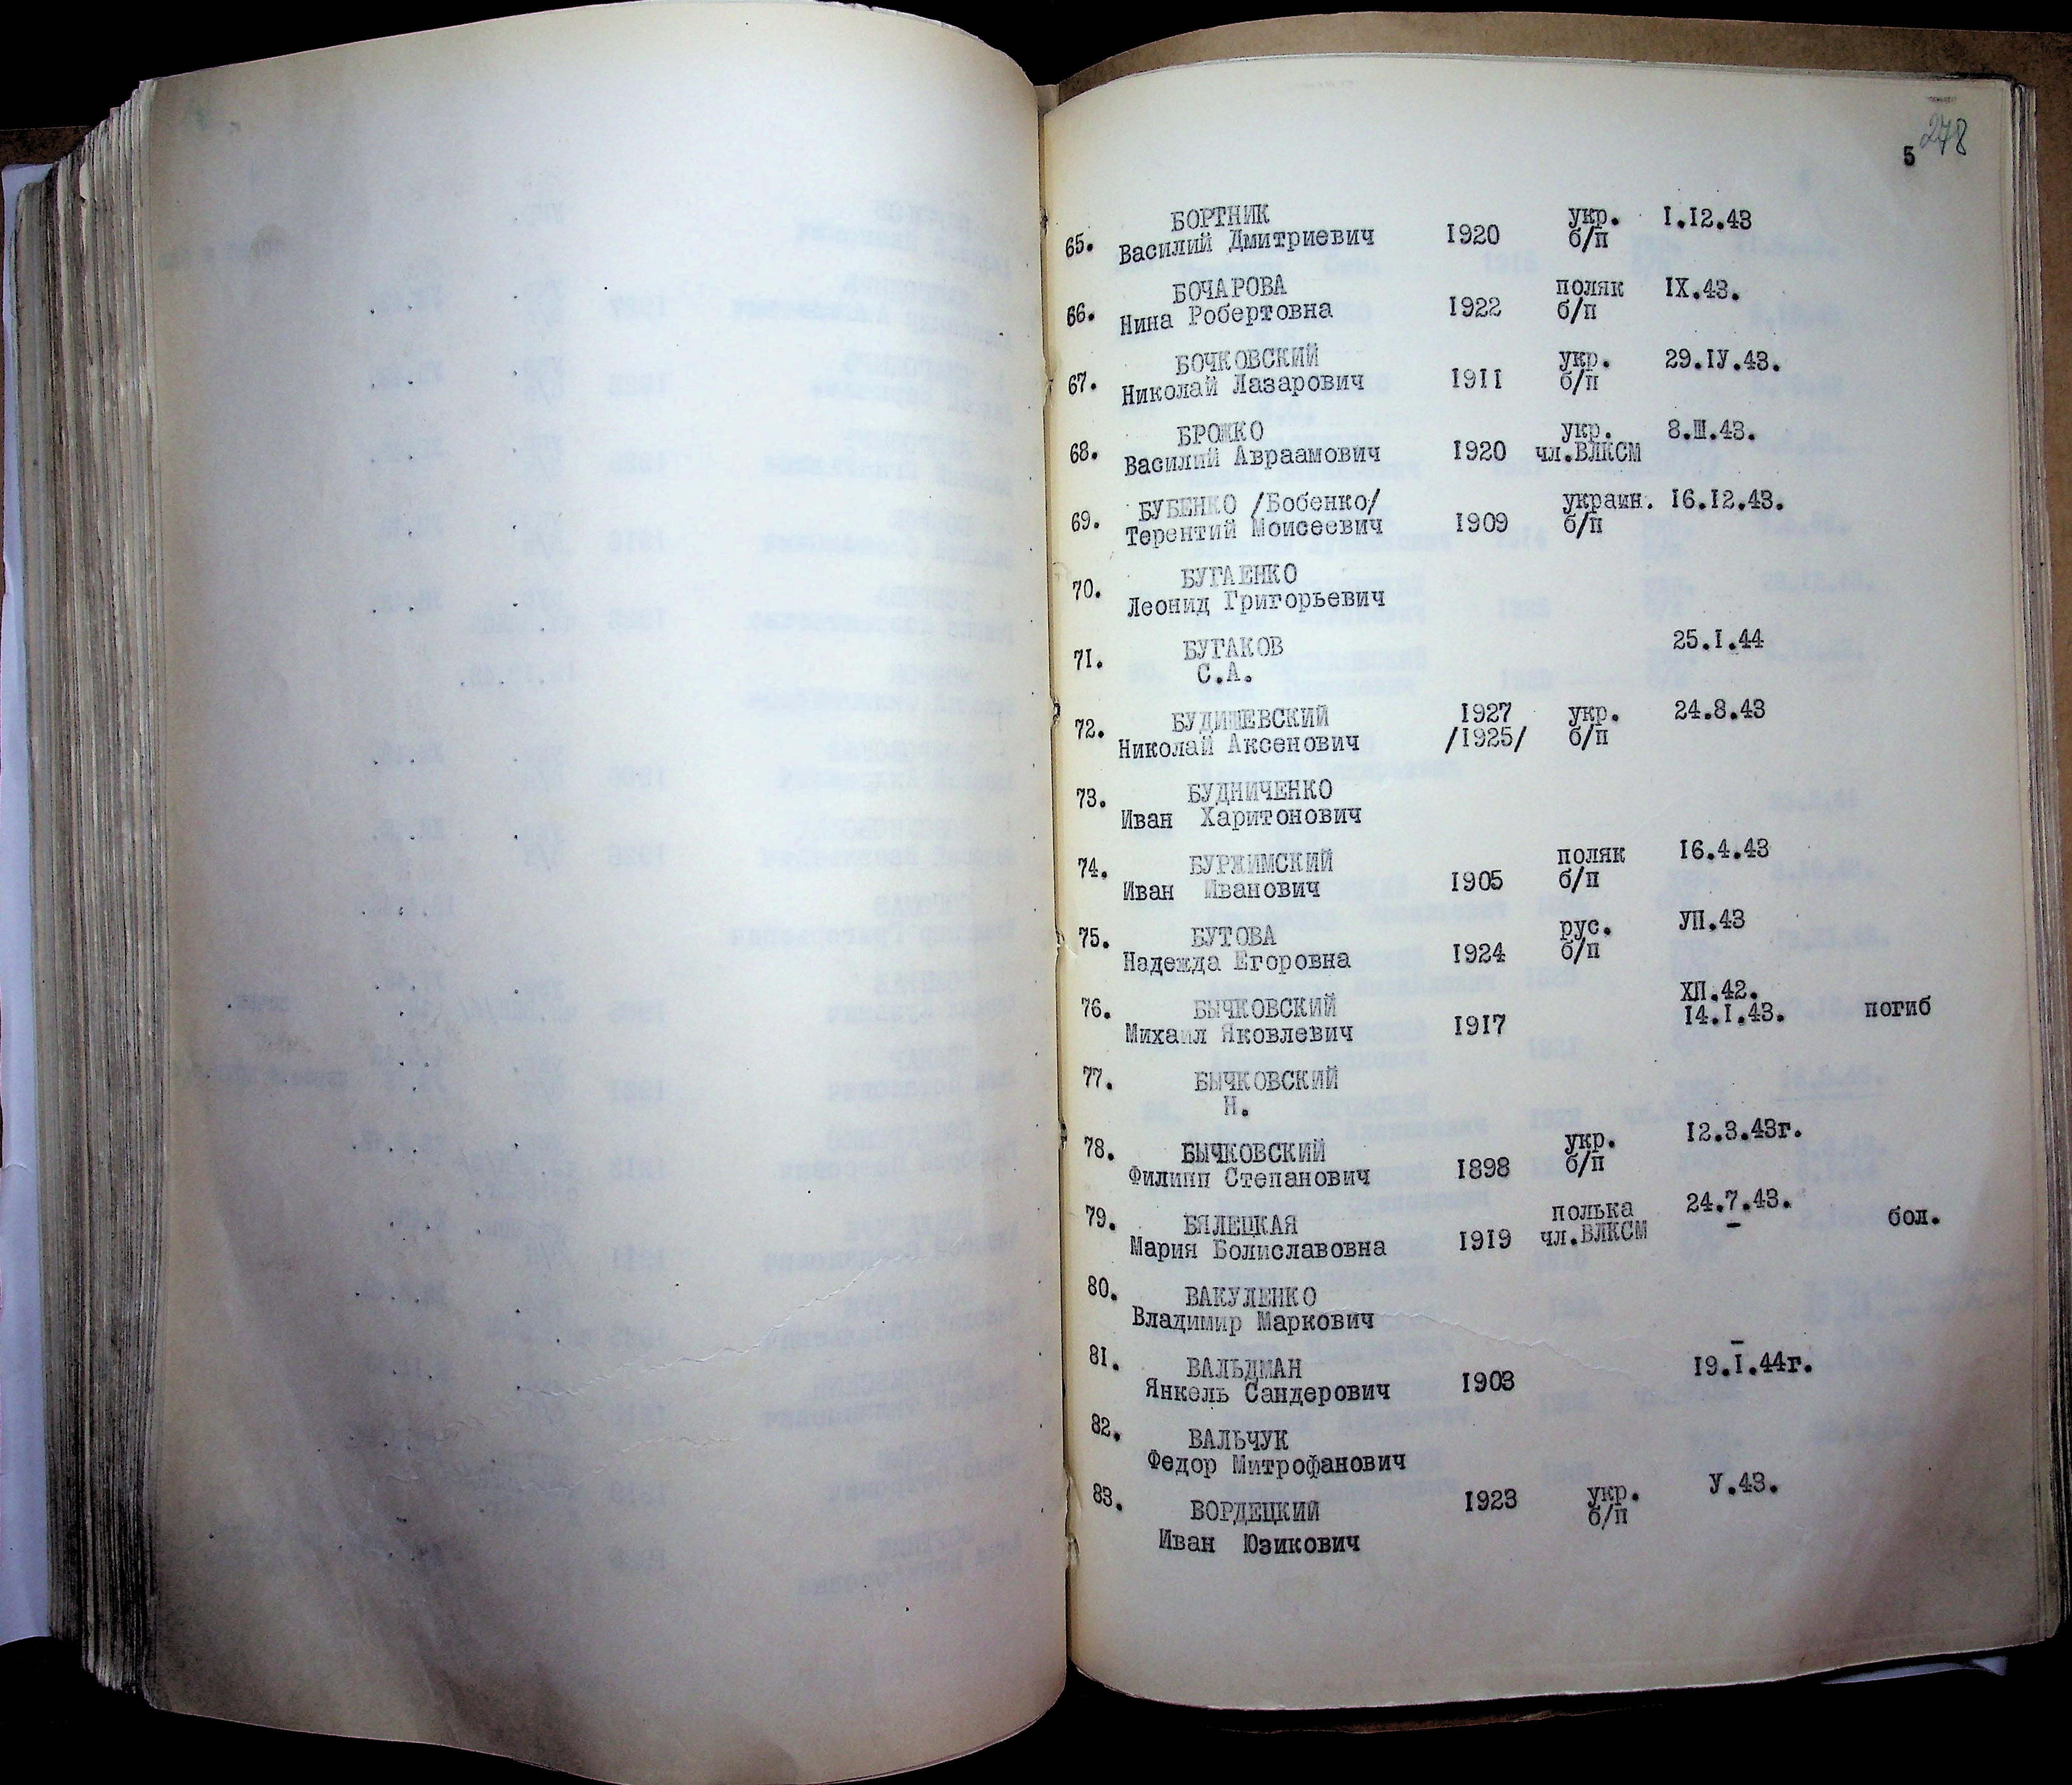 278
5
65. БОРТНИК
Василий Дмитриевич 1920 укр. б/п 1.12.43
66. БОЧАРОВА
Нина Робертовна 1922 поляк б/п IX.43.
67. БОЧКОВСКИЙ
Николай Лазарович 1911 укр. б/п 29.IУ.43.
68. БРОЖКО
Василий Авраамович 1920 укр. чл.ВЛКСМ 8.Ш.43.
69. БУБЕНКО /Бобенко/
Терентий Моисеевич 1909 украин. б/п 16.12.43.
70. БУГАЕНКО
Леонид Григорьевич
71. БУГАКОВ 25.I.44
С.А.
72. БУДИШЕВСКИЙ 1927 укр. 24.8.43
Николай Аксенович /1925/ б/п
73. БУДНИЧЕНКО
Иван Харитонович
74. БУРЖИМСКИЙ поляк 16.4.43
Иван Иванович 1905 б/п
75. БУТОВА рус. УП.43
Надежда Егоровна 1924 б/п
76. БЫЧКОВСКИЙ ХП.42.
Михаил Яковлевич 1917 14.I.43. погиб
77. БЫЧКОВСКИЙ
Н.
78. БЫЧКОВСКИЙ укр. 12.3.43г.
Филипп Степанович 1898 б/п
79. БЯЛЕЦКАЯ полька 24.7.43. бол.
Мария Болиславовна 1919 чл.ВЛКСМ –
80. ВАКУЛЕНКО
Владимир Маркович
81. ВАЛЬДМАН 19.I.44г.
Янкель Сандерович 1903
82. ВАЛЬЧУК
Федор Митрофанович
83. ВОРДЕЦКИЙ 1923 укр. б/п У.43.
Иван Юзикович